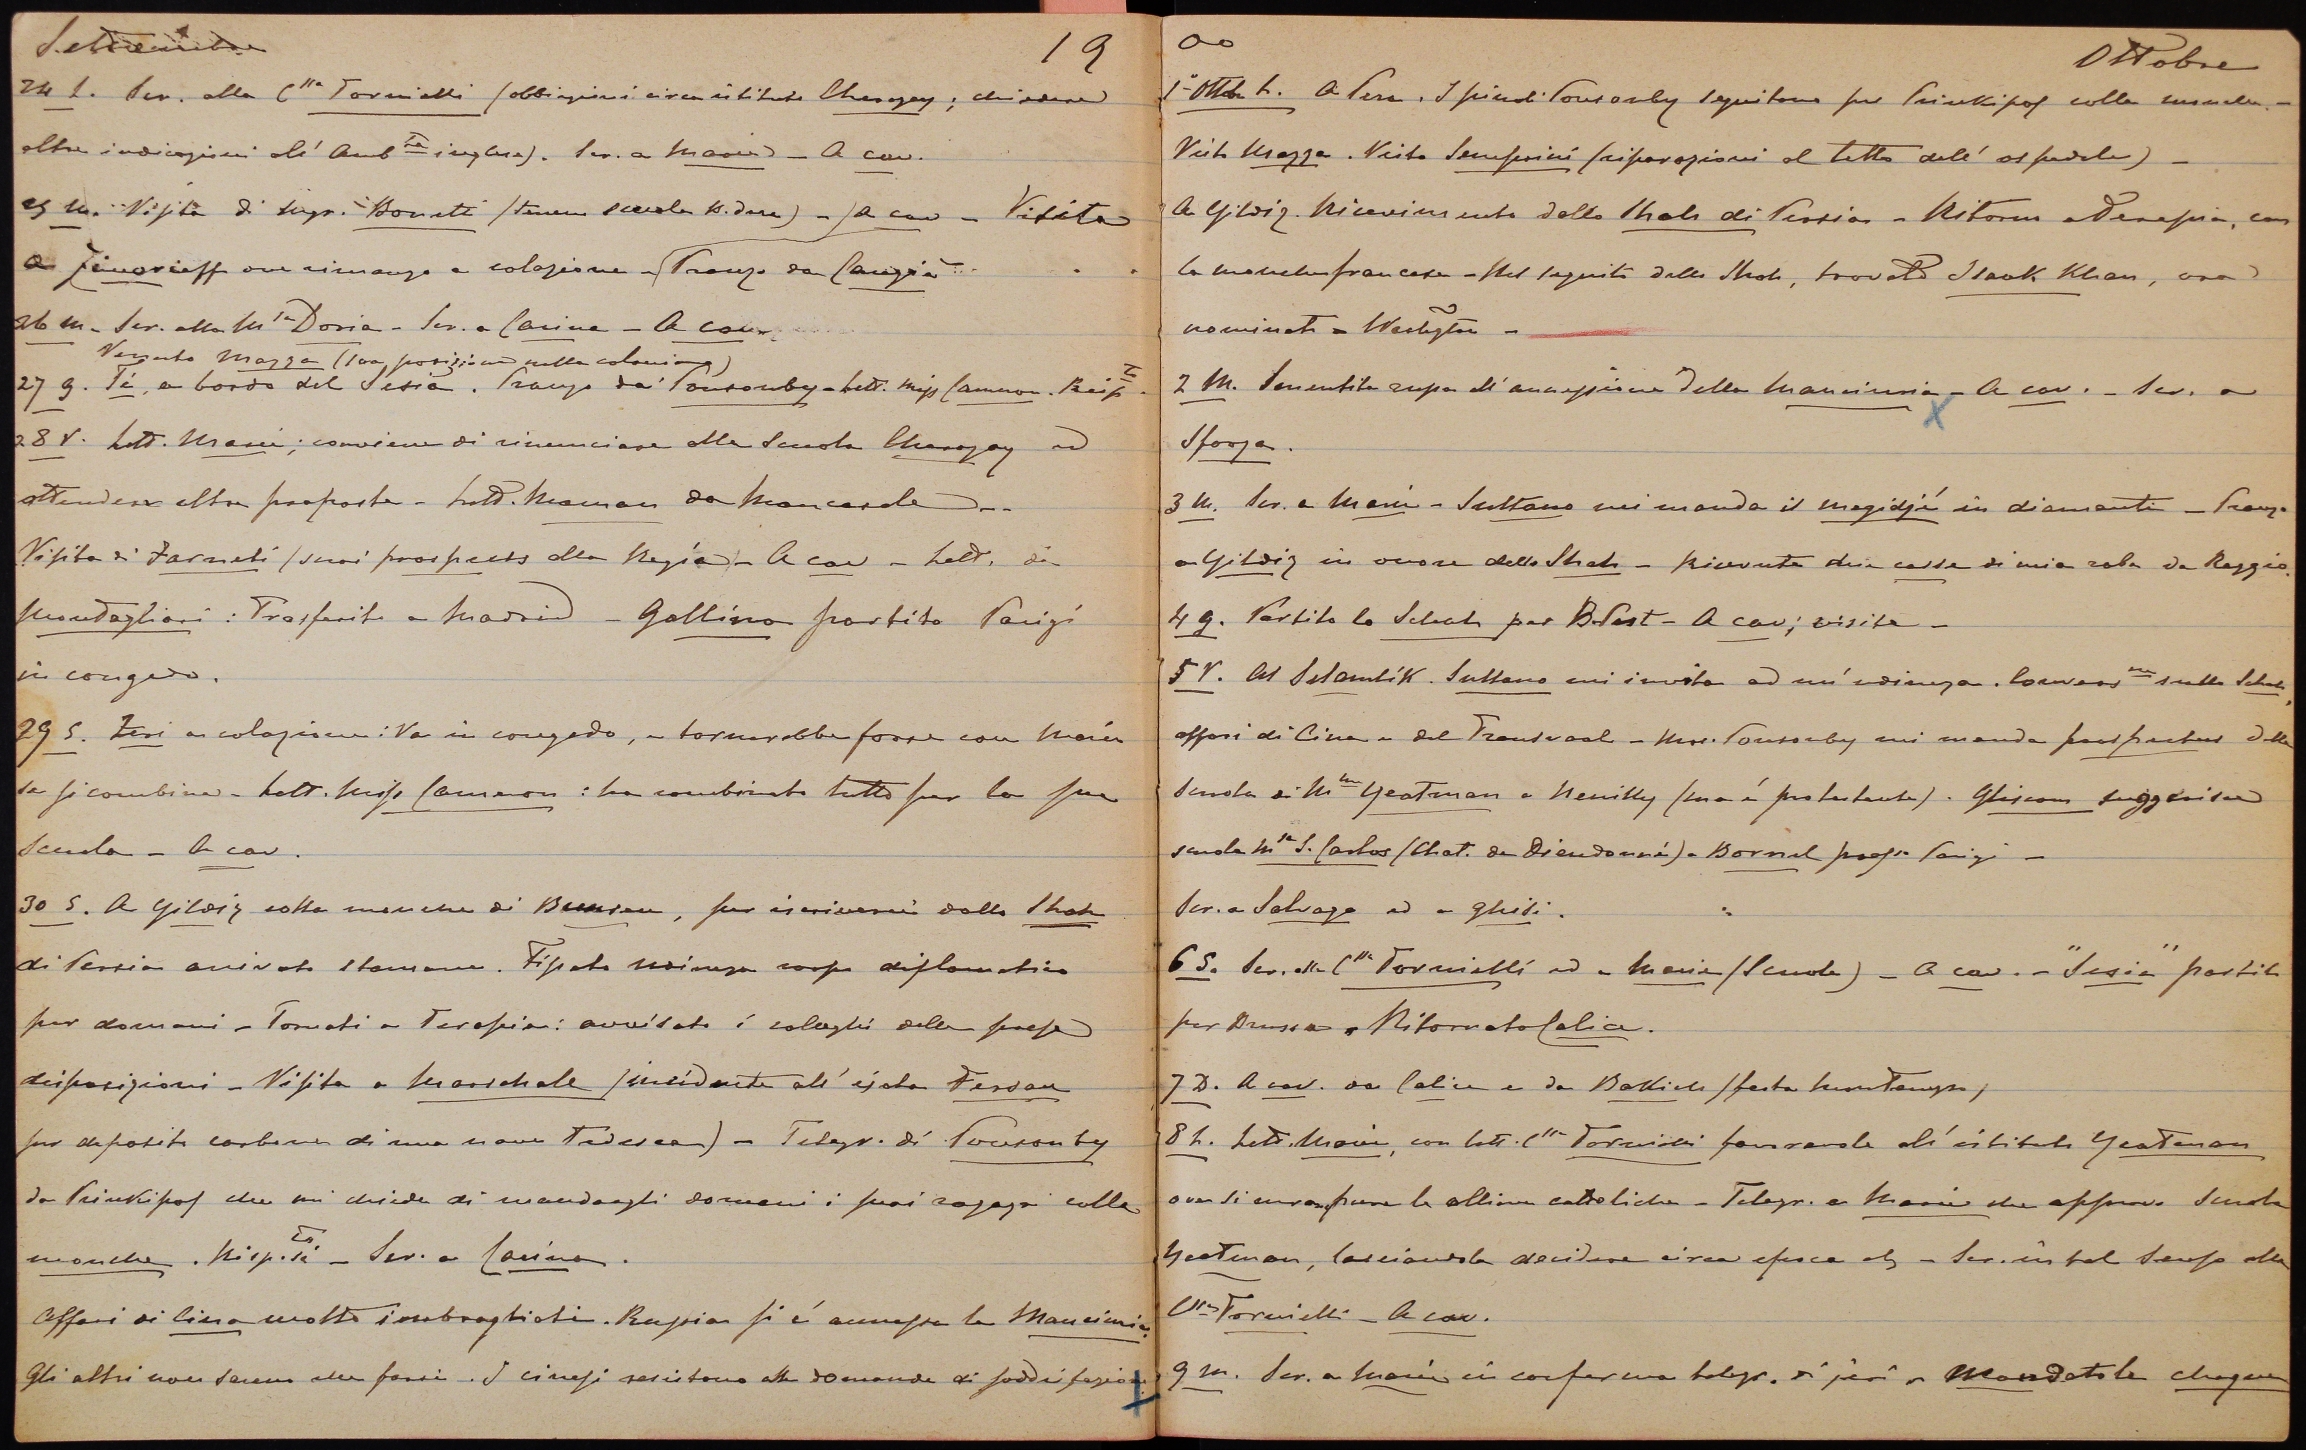 Settembre 19
24 L. Scr. alla C.ssa Tornielli (obbiezioni circa istituto Cherogay; chiedere
altre indicazioni all'Amb.ta inglese). Scr. a Marie - A cav.
25 M. Visita di Mgr. Bonetti (tenere scuola K.dere) - A cav - Visita
a Zinovieff ove rimango a colazione - Pranzo da Cangià
26 M. Scr. alla M.sa Doria - Scr. a Carina - A cav.
Venuto Mazza (sua posizione nella colonia)
27 G. Tè a bordo del Sesia. Pranzo da' Ponsonby - Lett. Miss Cameron. Risp.
28 V. Lett. Marie; conviene di rinunciare alla Scuola Cherogay ed
attendere altre proposte - Lett. Maman da Mancasale -
Visita di Zarneti (suoi prospects alla Regia) - A cav - Lett. di
Montagliari: Trasferito a Madrid - Gallina partito Parigi
in congedo.
29 S. Zeri a colazione: Va in congedo, e tornerebbe forse con Marie
se si combina - Lett. Miss Cameron: ha combinato tutto per la sua
scuola - A cav.
30 D. A Yildiz colla mouche di Bunsen, per iscriverci dallo Shah
di Persia arrivato stamane. Fissata udienza corpo diplomatico
per domani - Tornati a Terapia: avvisato i colleghi delle prese
disposizioni - Visita a Marschall (incidente all'isola Fersan
per deposito carbone di una nave Tedesca) - Telegr. di Ponsonby
da Prinkipos che mi chiede di mandargli domani i suoi ragazzi colla
mouche. Risp. si - Scr. a Carina.
Affari di Cina molto imbrogliati. Russia si è annessa la Manciuria.
Gli altri non sanno che fare. I cinesi resistono alle domande di soddisfazione
00 Ottobre
1° Ott. L. A Pera. I piccoli Ponsonby seguitano per Prinkipos colla mouche. -
Visto Mazza. Visto Semprini (riparazioni al tetto dell'ospedale) -
A Yildiz. Ricevimento dello Shah di Persia - Ritorno a Terapia, con
la mouche francese - Nel seguito dello Shah, trovato Isaak Khan, ora
nominato a Washgton -
2 M. Smentita russa all'annessione della Manciuria - A cav. - Scr. a
Sforza.
3 M. Scr. a Marie - Sultano mi manda il megidjé in diamanti - Pranzo
a Yildiz in onore dello Shah - Ricevute due casse di mia roba da Reggio.
4 G. Partito lo Schah per B. Pest - A cav; visite -
5 V. Al Selamlik. Sultano mi invita ad un'udienza. Convers.ne sullo Schah,
affari di Cina e del Transvaal - Mrs. Ponsonby mi manda prospectus della
scuola di M.me Yeatman a Neuilly (ma è protestante). Ghiscom suggerisce
scuola M.sa S. Carlos (Chat. de Dieudonné) a Bornel presso Parigi -
Scr. a Salvago ed a Ghisi.
6 S. Scr. alla C.ssa Tornielli ed a Marie (Scuola) - A cav. - "Sesia" partita
per Brussa - Ritornato Calice.
7 D. A cav. da Calice e da Bakich (festa Montenegro)
8 L. Lett. Marie, con lett. C.ssa Tornielli favorevole all'istituto Yeatman
ove si curan pure le allieve cattoliche - Telegr. a Marie che approvo Scuola
Yeatman, lasciandola decidere circa epoca etc - Scr. in tal senso alla
C.ssa Tornielli - A cav.
9 M. Scr. a Marie in conferma telegr. di jeri - Mandatole cheque